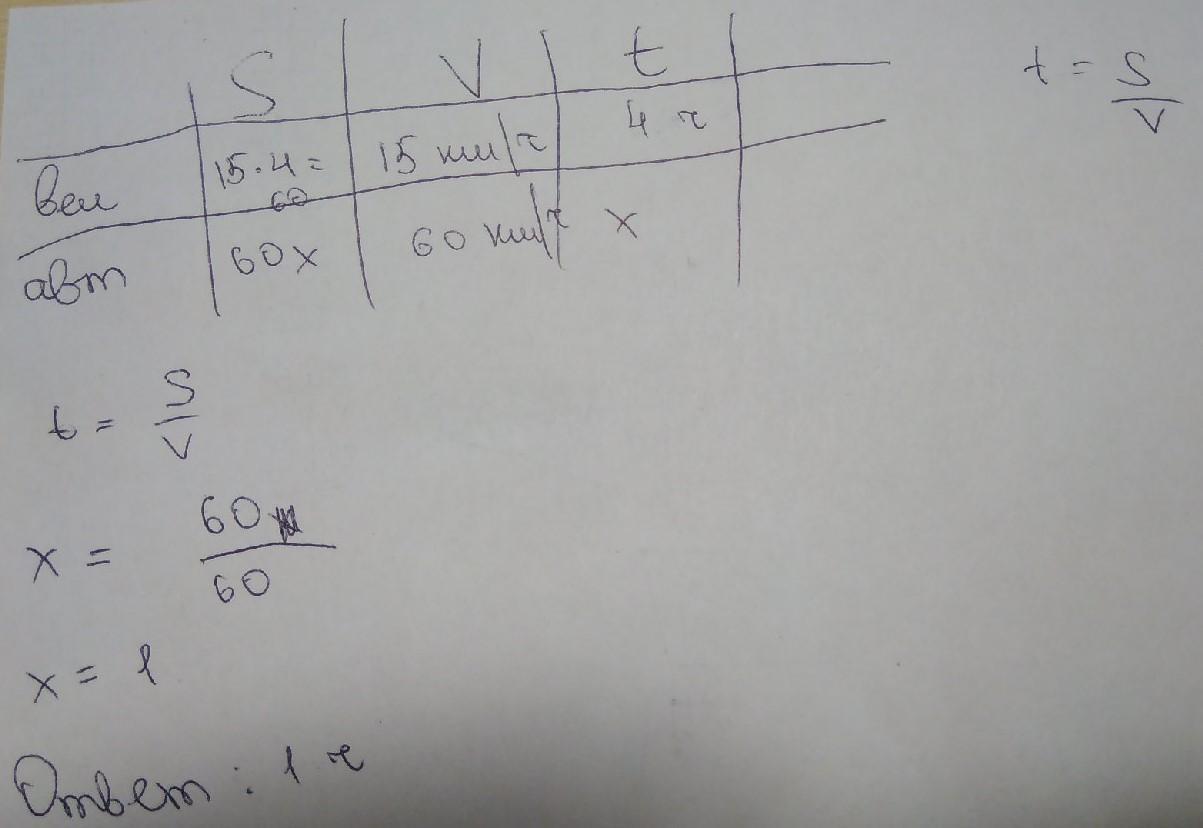 S V t
t = S/V
вел 15·4= 60 15 км/ч 4 ч
авт 60x 60 км/ч x
t = S/V
x = 60/60
x = 1
Ответ: 1 ч